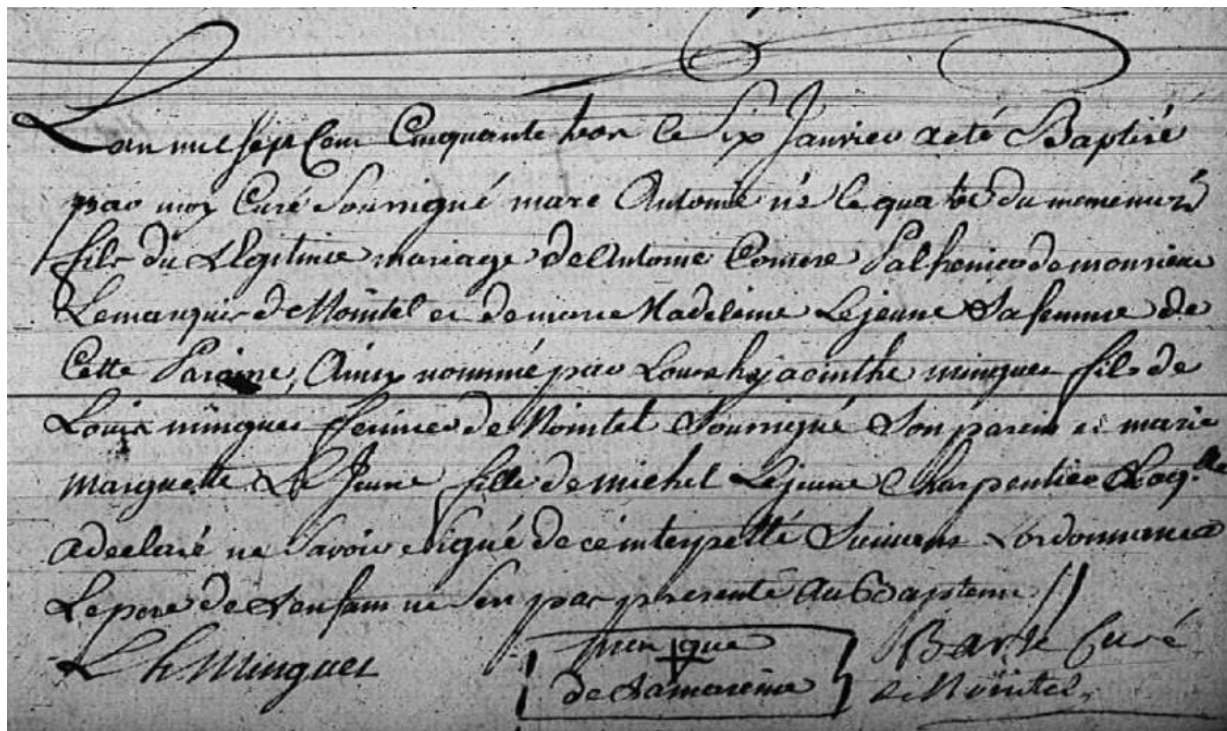 Lan mil sept Cent Cinquante trois le Six Janvier a eté Baptisé
par moy Curé Soussigné marc Antoine né le quatre du meme mois
fils du Légitime mariage de Antoine Palfrenier de monsieur
Lemarquis de Nointel et de marie Madeleine Lejeune Sa femme de
Cette Paroisse, Ainsy nommé par Louis hyacinthe minguet fils de
Louis minguet fermier de Nointel Soussigné Son parein et marie
margueritte Le Jeune fille de michel Lejeune Charpentier Laq.lle
a declaré ne Savoir signé de ce interpellé Suivant Lordonnance
Le pere de Lenfant ne Sest pas presenté Au Bapteme //
L h Minguet
marque
de La mareine
Curé
de Nointel